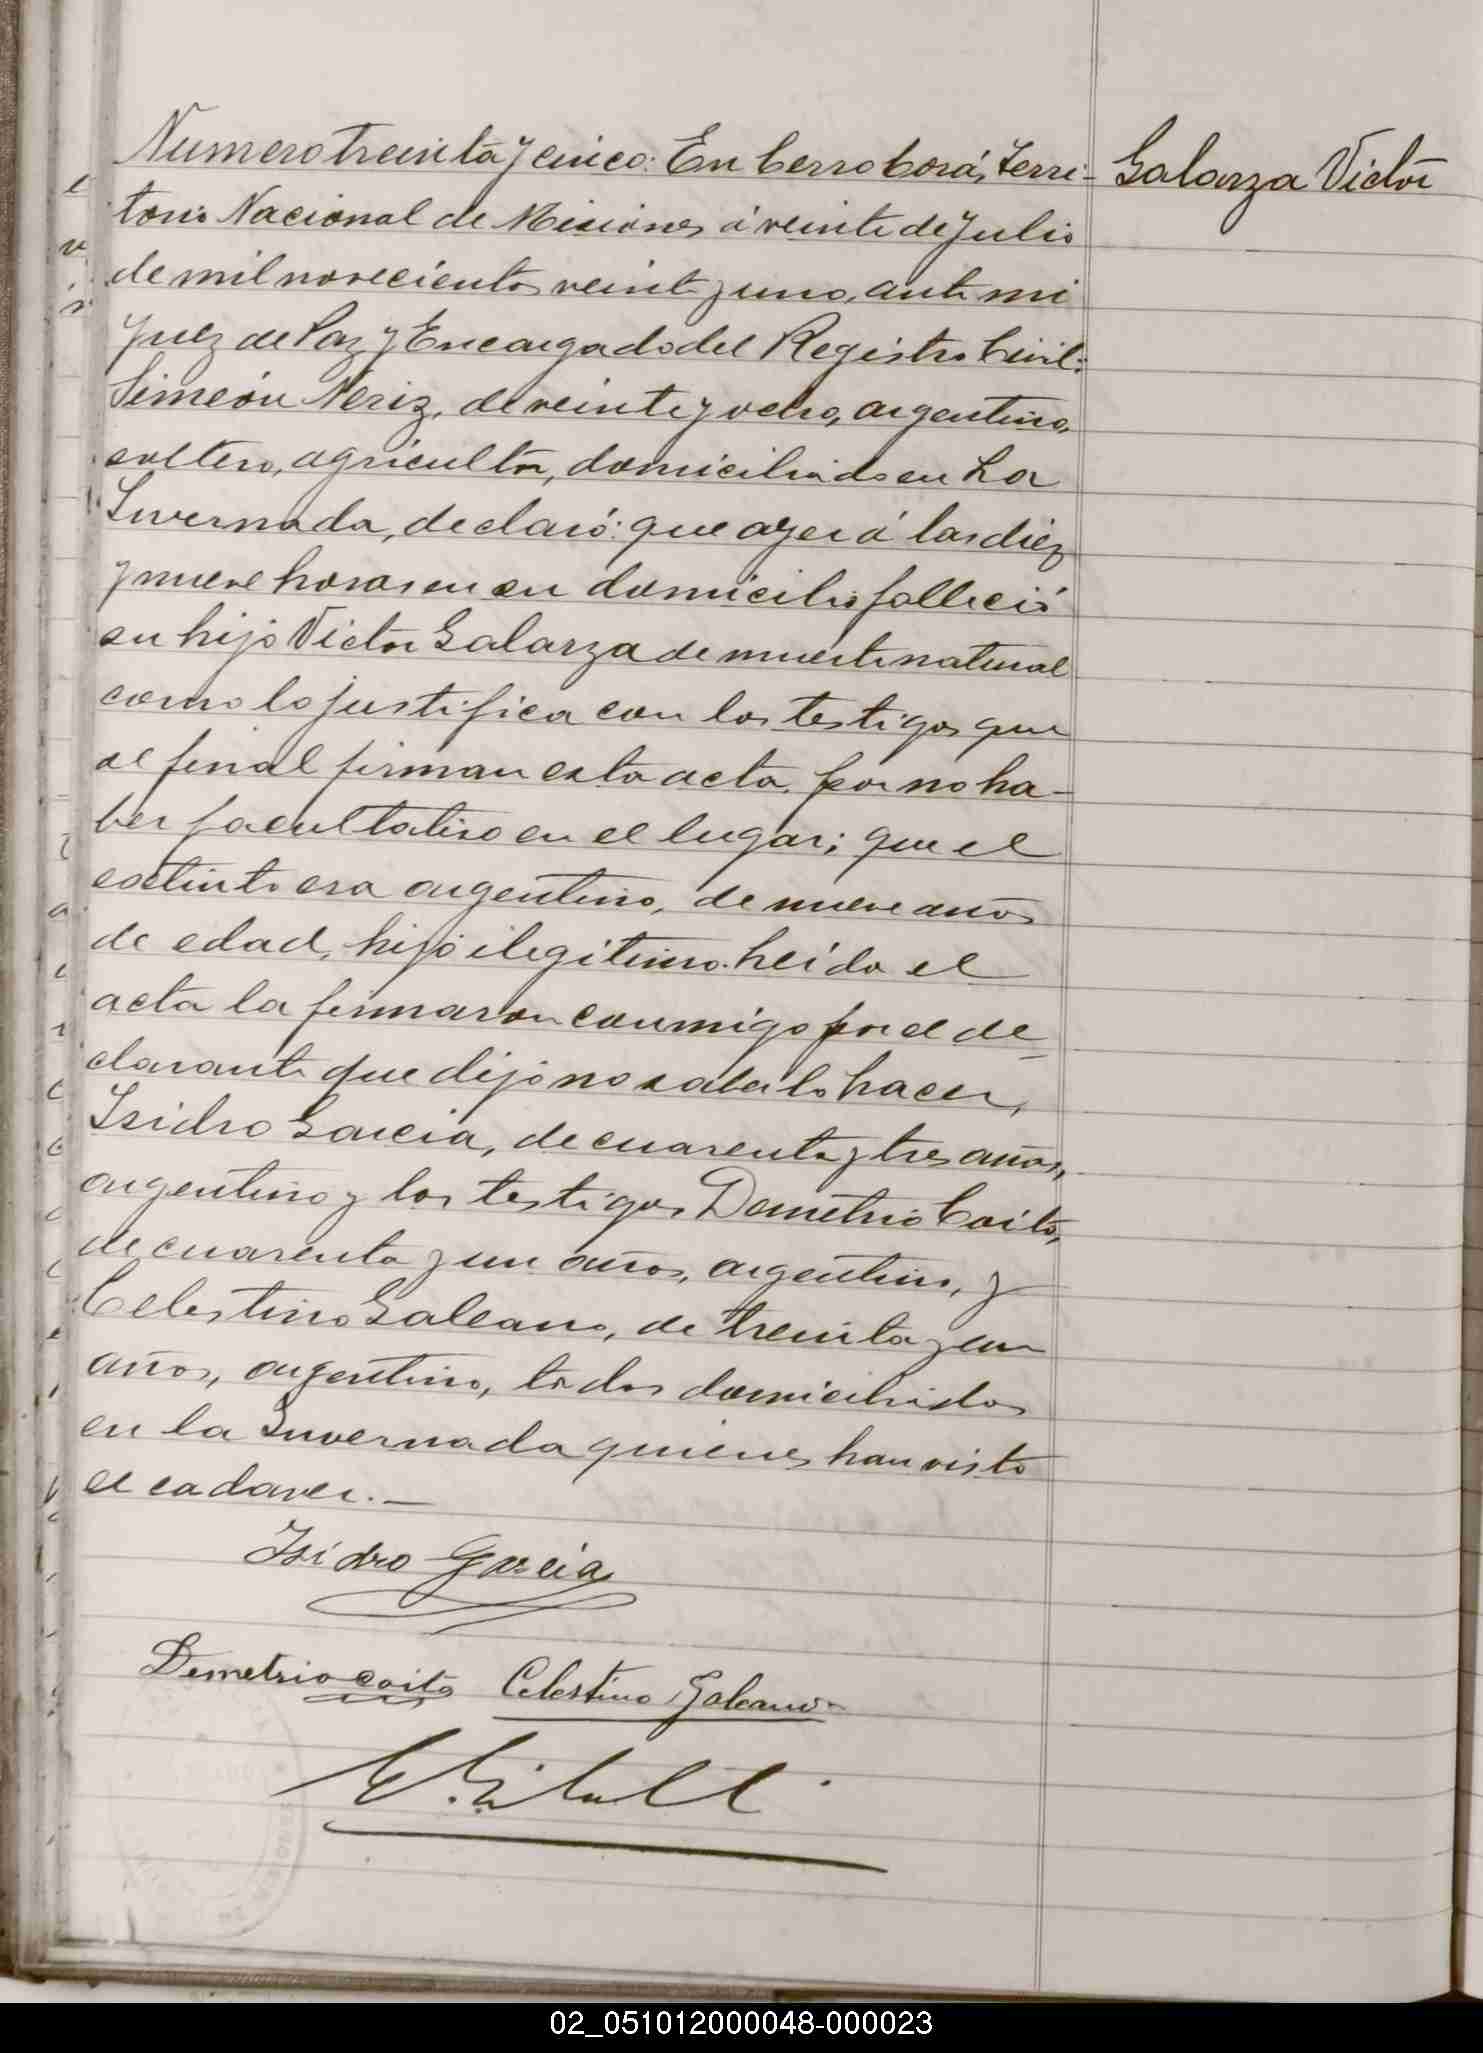 Numero treinta y cinco: En Cerro Corá, Terri-
torio Nacional de Misiones á veinte de Julio
de mil novecientos veinte y uno, ante mi
Juez de Paz y Encargado del Registro Civil:
Simeón Neriz, de veinte y ocho, argentino,
soltero, agricultor, domiciliado en La
Invernada, declaró: que ayer á las diez
y nueve horas en su domicilio falleció
su hijo Victor Galarza de muerte natural
como lo justifica con los testigos que
al final firman esta acta, por no ha-
ber facultativo en el lugar; que el
extinto era argentino, de nueve años
de edad, hijo ilegitimo. Leida el
acta la firmaron conmigo por el de-
clarante que dijo no saberlo hacer,
Isidro Garcia, de cuarenta y tres años,
argentino y los testigos Demetrio Coito,
de cuarenta y un años, argentino, y
Celestino Galeano, de treinta y un
años, argentino, todos domiciliados
en la Invernada quienes han visto
el cadaver.—
Galarza Victor
Isidro Garcia
Demetrio Coito Celestino Galeano
02_051012000048-000023